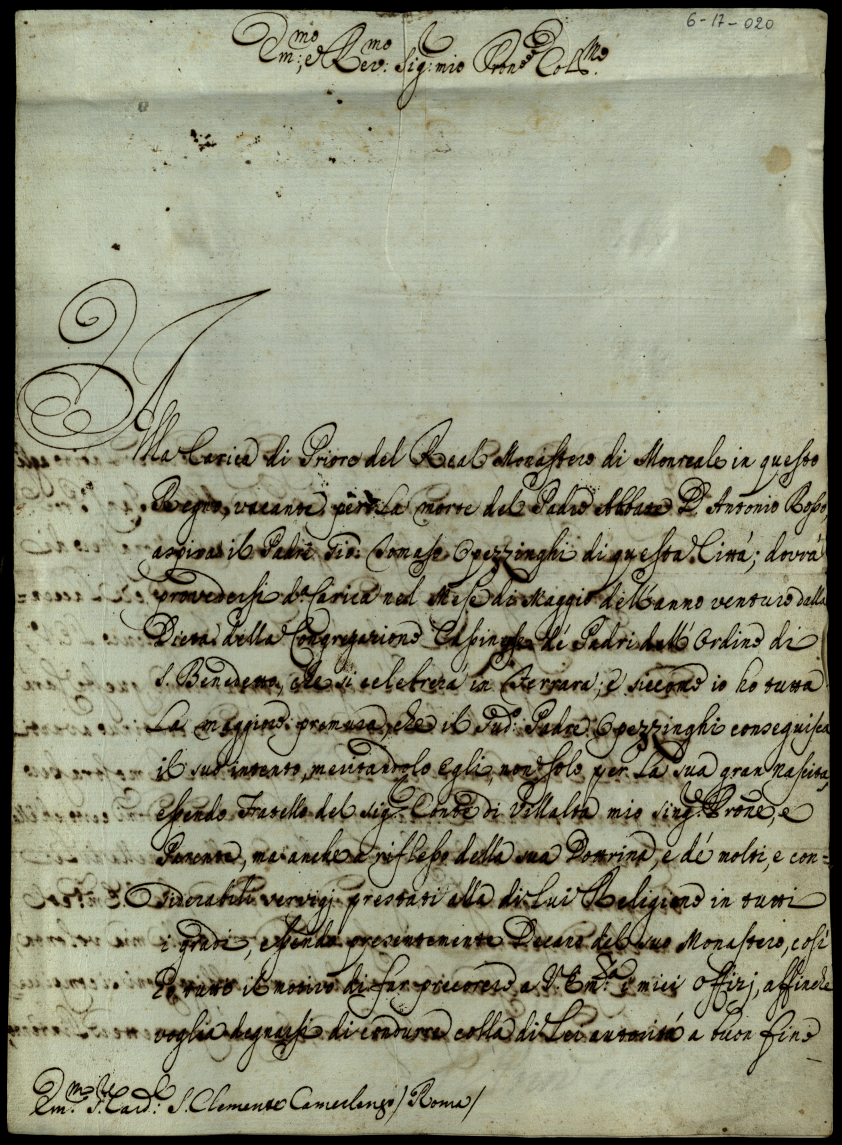 6-17-020
Em:mo, e Rev:mo Sig: mio Pron Col:mo
Alla Carica di Priore del Real Monastero di Monreale in questo
Regno, vacante per la morte del Padre Abbate D. Antonio Rosso,
aspira il Padre Gio: Tomaso Opezzinghi di questa Città; dovrà
provedersi da Carica nel Mese di Maggio dell'anno venturo dalla
Dieta della Congregazione Casinese de' Padri dell'Ordine di
S. Benedetto, che si celebrerà in Ferrara; e siccome io ho tutta
La maggior premura, che il Sud: Padre Opezzinghi conseguisca
il suo intento, meritandolo Egli, non solo per La sua gran Nascita,
essendo Fratello del Sig: Conte di Villalta mio Sing: Prone, e
Parente, ma anche a riflesso della sua Dottrina, e de' molti, e con=
siderabili servigj prestati alla di Lui Religione in tutti
i gradi, essendo presentemente Decano del suo Monastero, così
ho tutto il motivo di far precorrere a V: Em:za i miei Offizj, affinche
voglia degnarsi di condurre colla di Lei autorità a buon fine
Em:mo S: Card: S. Clemente Camerlengo / Roma /